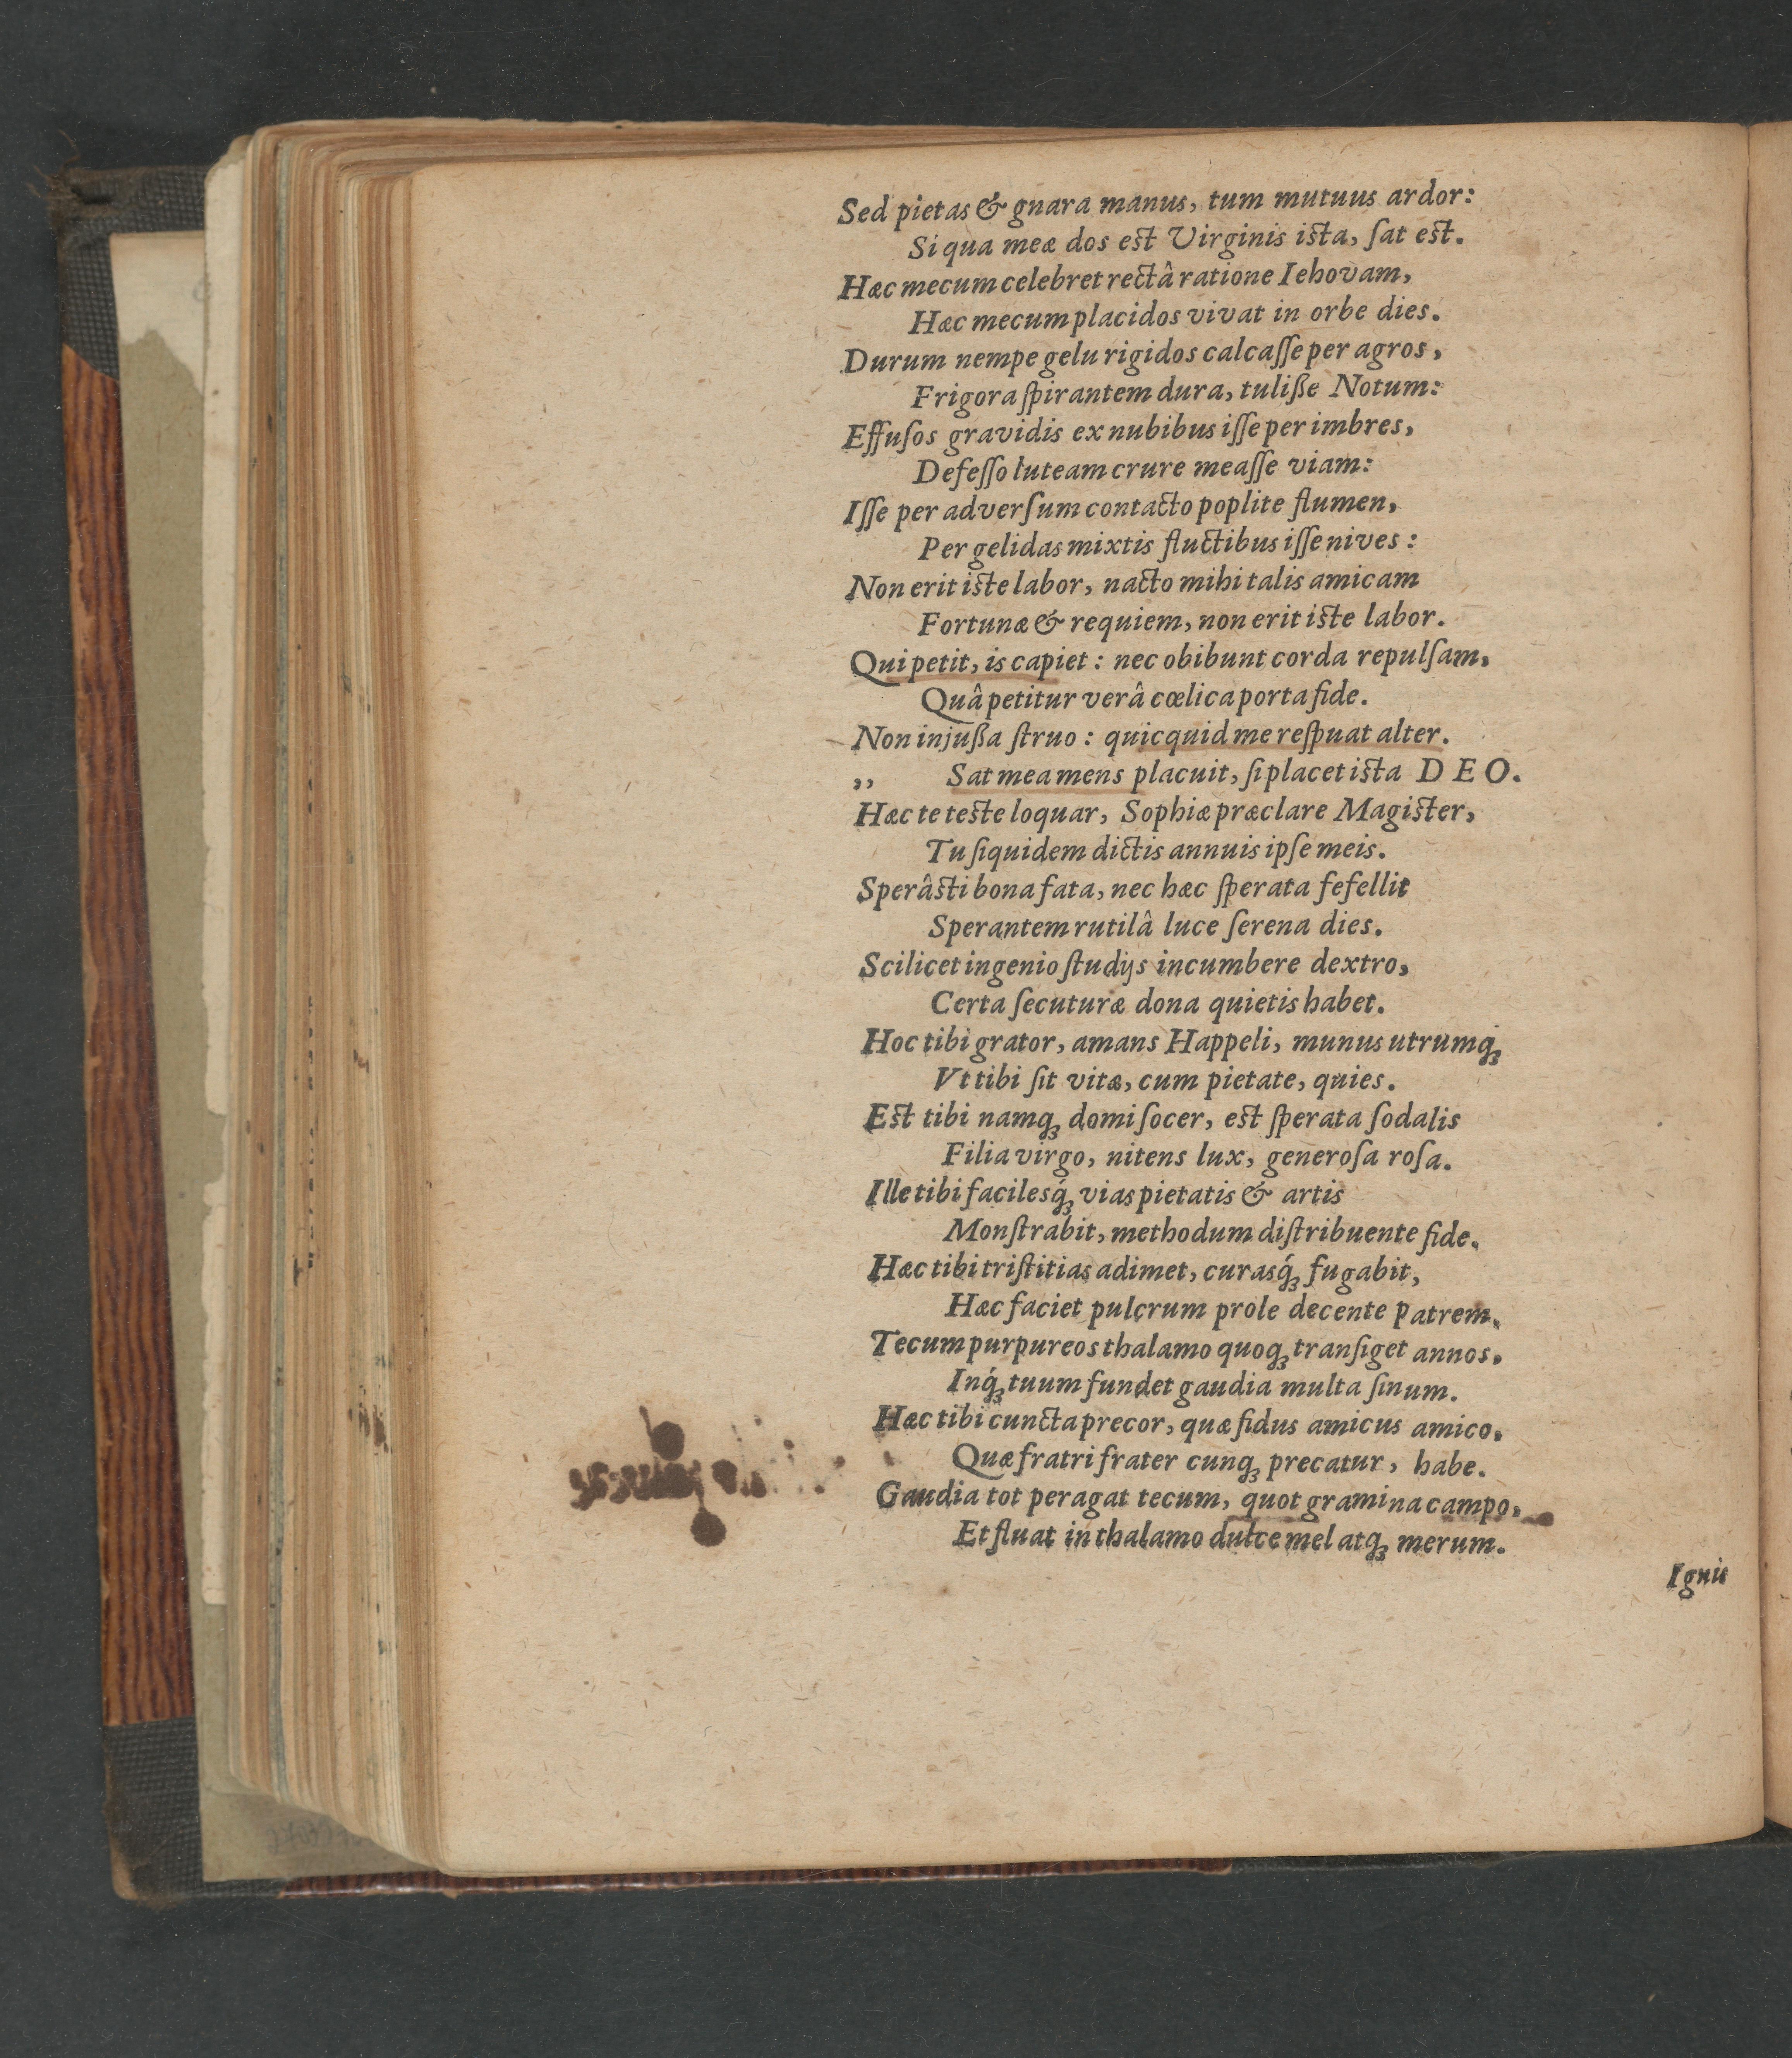 Sed pietas & gnara manus, tum mutuus ardor:
Si qua meæ dos est Virginis ista, ſat est.
Hæc mecum celebret rectâ ratione Iehovam,
Hæc mecum placidos vivat in orbe dies.
Durum nempe gelu rigidos calcaſſe per agros,
Frigora ſpirantem dura, tuliße Notum:
Effuſos gravidis ex nubibus iſſe per imbres,
Defeſſo luteam crure meaſſe viam:
Iſſe per adverſum contacto poplite flumen,
Per gelidas mixtis fluctibus iſſe nives:
Non erit iste labor, nacto mihi talis amicam
Fortunæ & requiem, non erit iste labor.
Qui petit, is capiet: nec obibunt corda repulſam,
Quâ petitur verâ cœlica porta fide.
Non injußa ſtruo: quicquid me reſpuat alter.
,, Sat mea mens placuit, ſi placet ista DEO.
Hæc te teste loquar, Sophiæ præclare Magister,
Tu ſiquidem dictis annuis ipſe meis.
Sperâsti bona fata, nec hæc ſperata fefellit
Sperantem rutilâ luce ſerena dies.
Scilicet ingenio ſtudijs incumbere dextro,
Certa ſecuturæ dona quietis habet.
Hoc tibi grator, amans Happeli, munus utrumq́ꝫ
Vt tibi ſit vitæ, cum pietate, quies.
Est tibi namqꝫ domi ſocer, est ſperata ſodalis
Filia virgo, nitens lux, generoſa roſa.
Ille tibi facilesq́ꝫ vias pietatis & artis
Monſtrabit, methodum diſtribuente fide.
Hæc tibi triſtitias adimet, curasq́ꝫ fugabit,
Hæc faciet pulcrum prole decente patrem.
Tecum purpureos thalamo quoqꝫ tranſiget annos,
Inq́ꝫ tuum fundet gaudia multa ſinum.
Hæc tibi cuncta precor, quæ fidus amicus amico,
Quæ fratri frater cunqꝫ precatur, habe.
Gaudia tot peragat tecum, quot gramina campo,
Et fluat in thalamo dulce mel atqꝫ merum.
Ignis